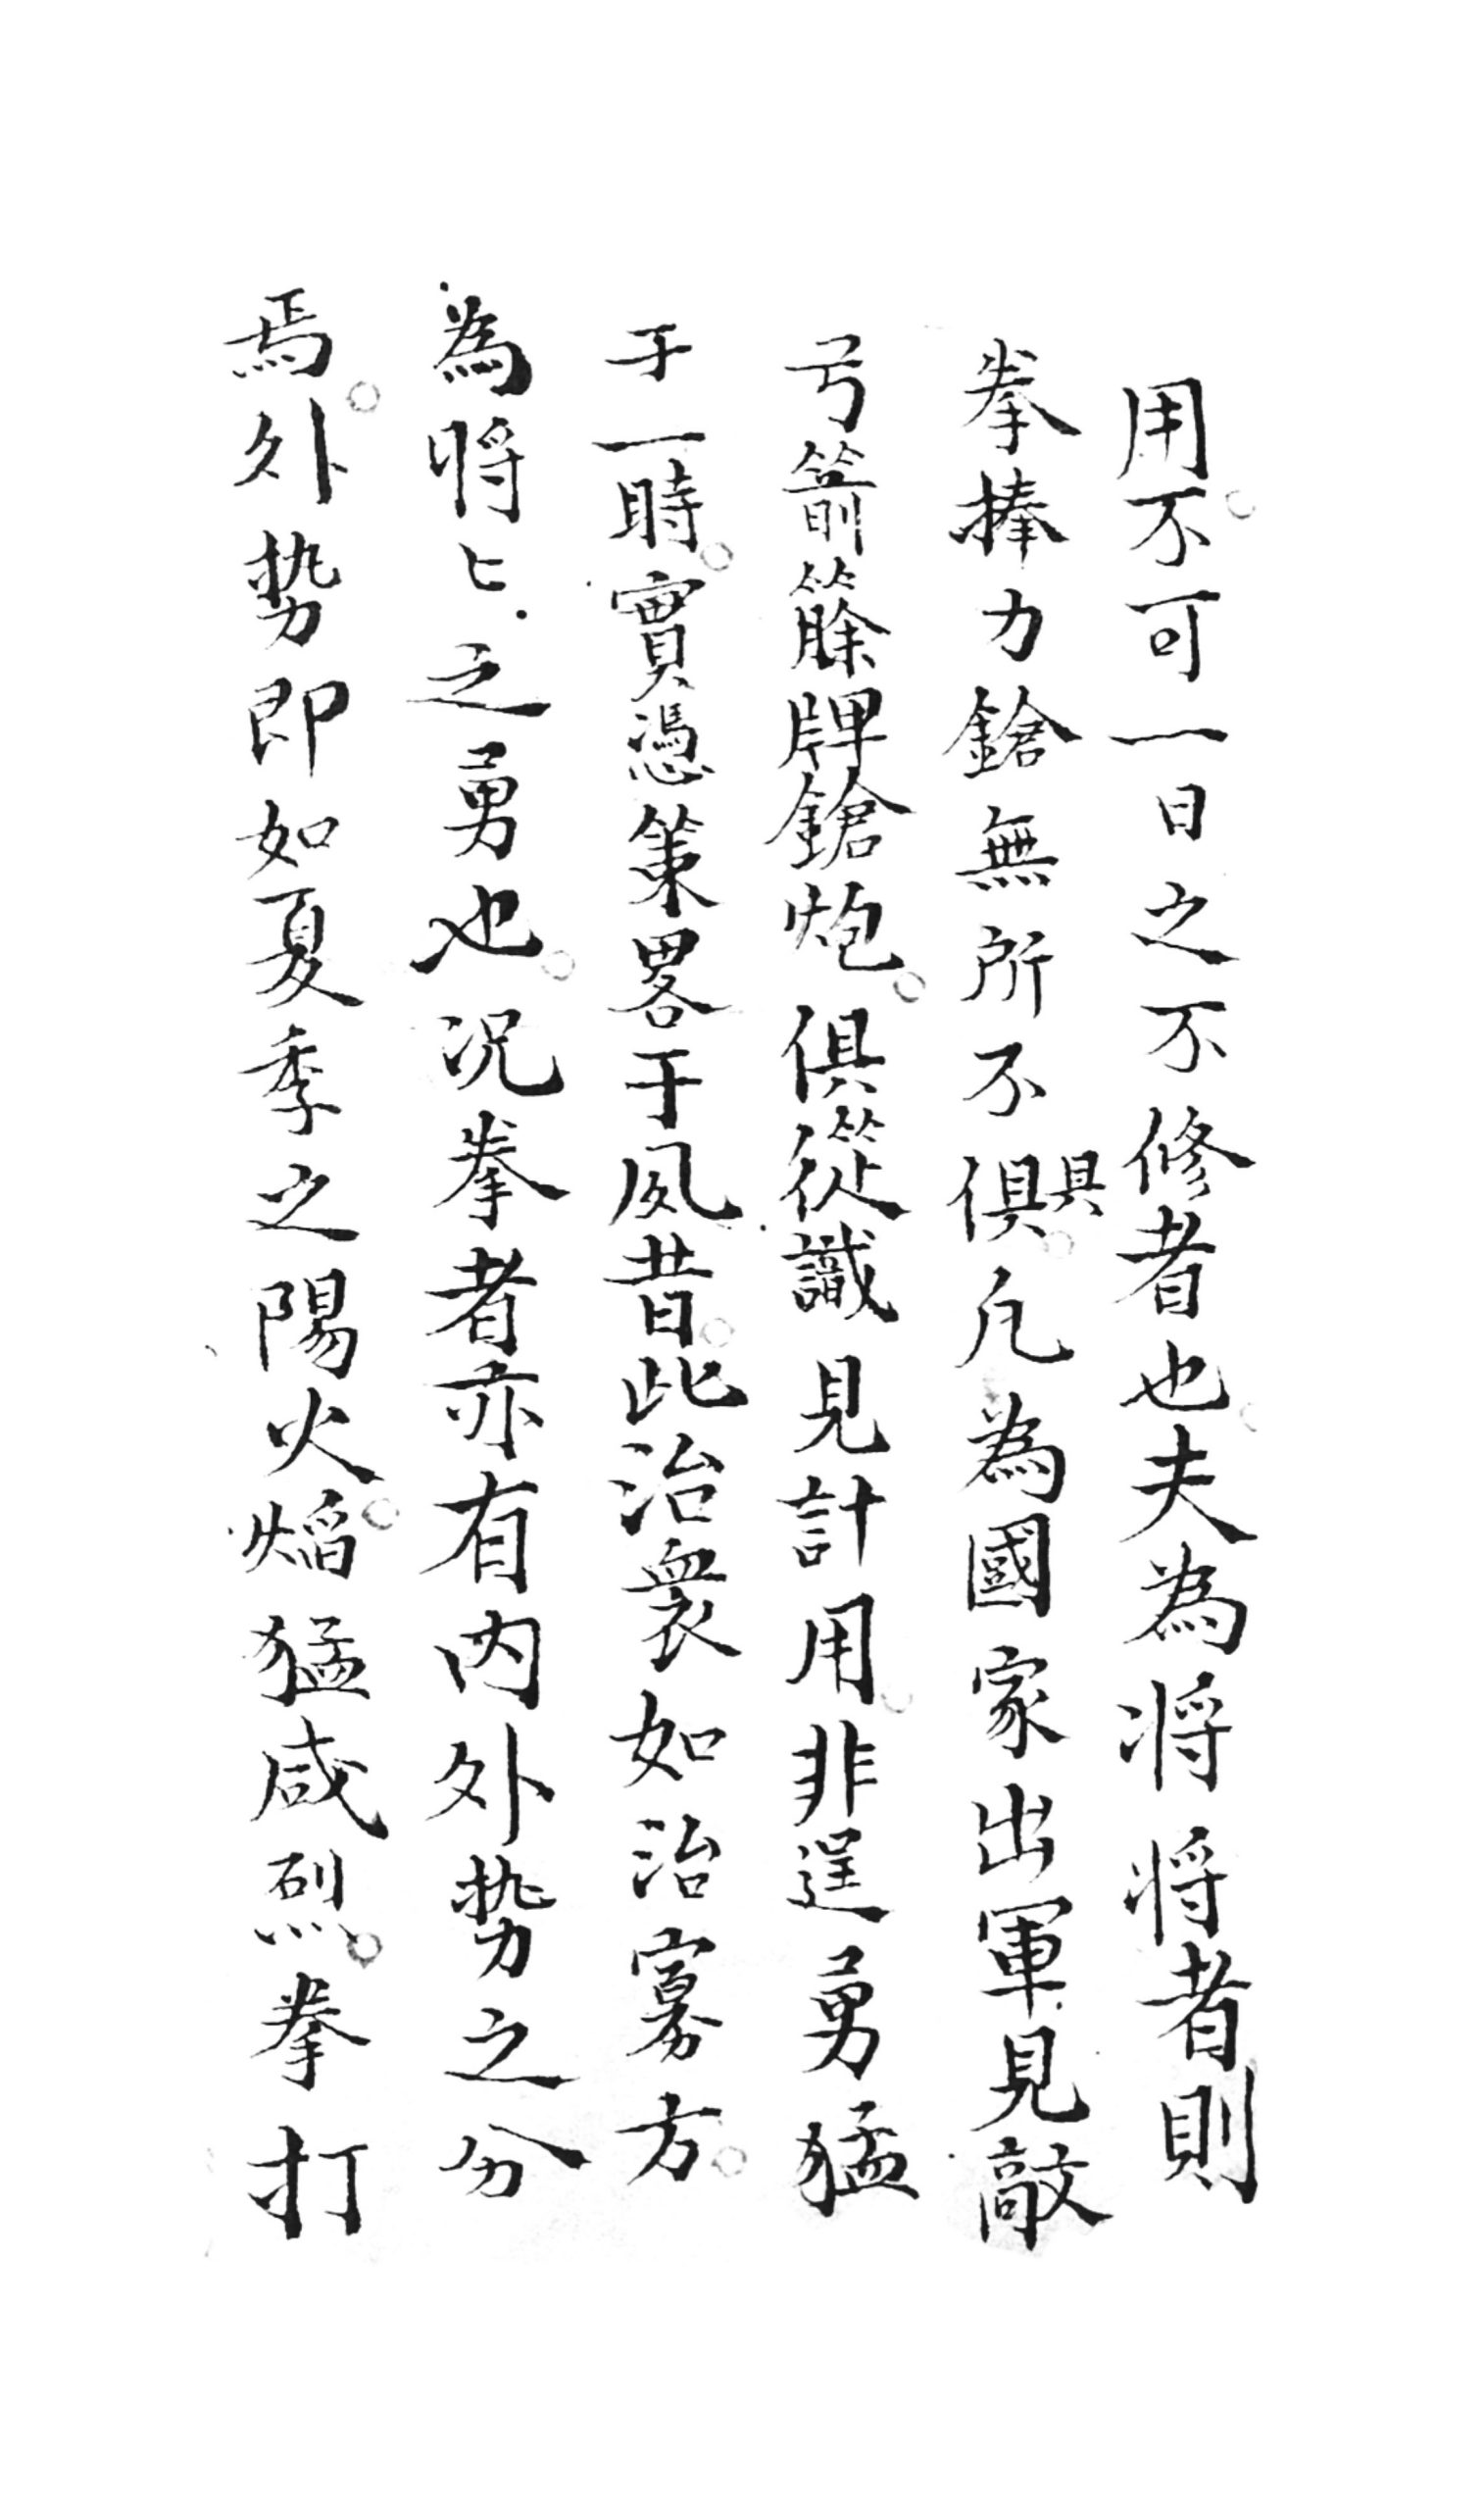 用。不可一日之不修者也。夫為将将者則
拳捧力鎗無所不俱具。凡為國家出軍見敵
弓箭籐牌鎗炮。俱從識見計用。非逞勇猛
于一時。實憑策畧于夙昔。此治衆如治寡方。
為将〻之勇也。况拳者亦有内外势之分
焉。外势即如夏季之陽火。焰猛咸烈。拳打